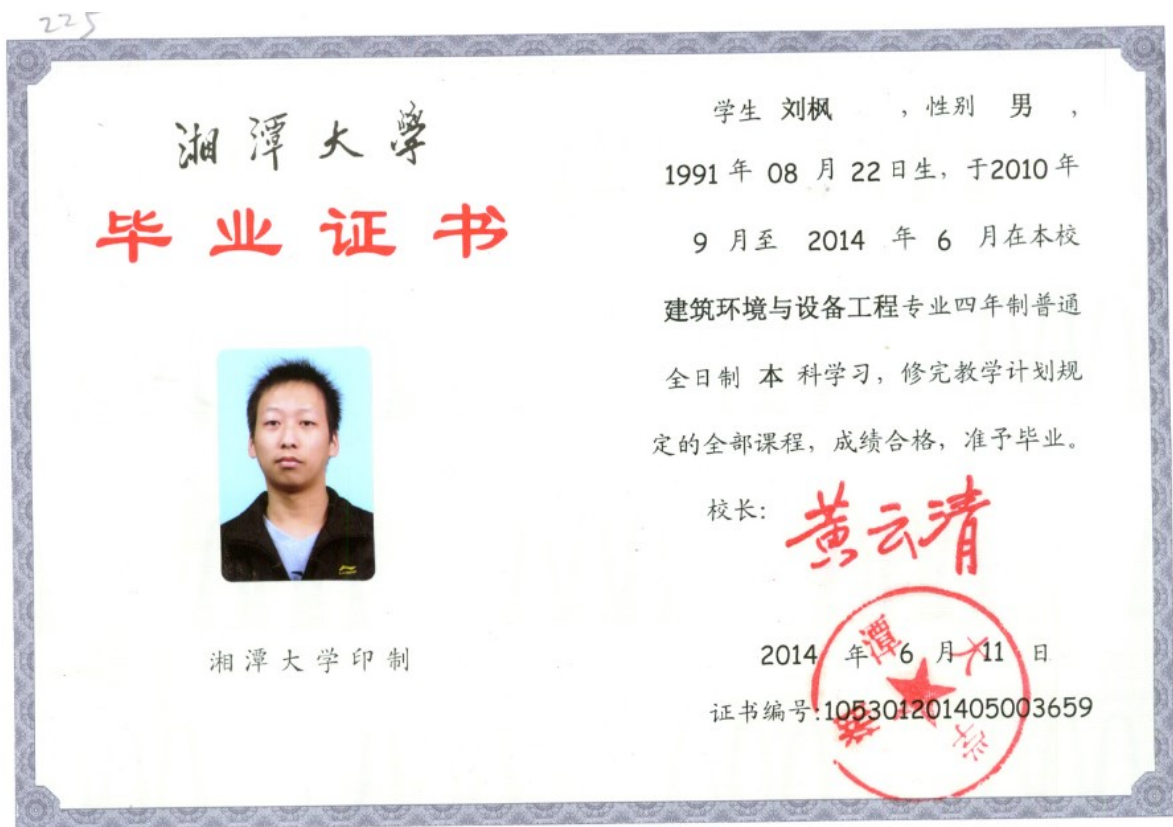 225
湘潭大學
毕业证书
湘潭大学印制
学生 刘枫 ，性别 男 ，
1991 年 08 月 22 日生，于2010 年
9 月至 2014 年 6 月在本校
建筑环境与设备工程专业四年制普通
全日制 本 科学习，修完教学计划规
定的全部课程，成绩合格，准予毕业。
校长：
黄云清
2014 年 6 月 11 日
证书编号:105301201405003659
湘潭大学